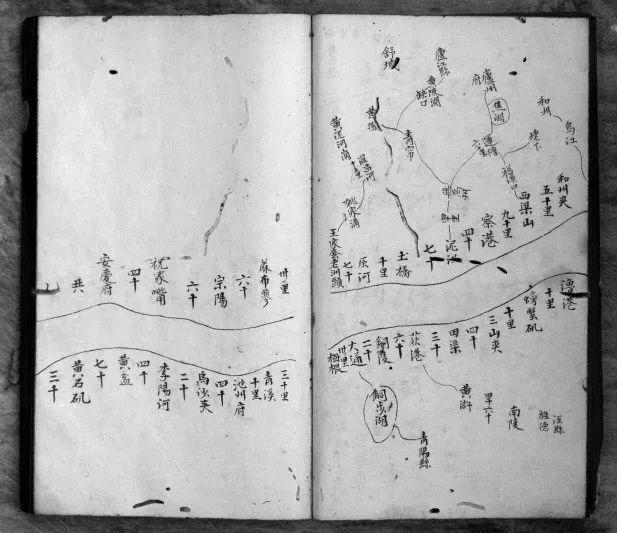 舒城
廬江縣
黃陂湖
縣口
廬州府
巢湖
和州
烏江
運漕
青帘
黃泥河
姚家溝
王家套老洲頭
七十
灰河
十里
土橋
七十
泥汊
四十
奈港
九十里
西梁山
五十里
和州夾
卅里
麻布蓼
六十
宗陽
六十
祝家嘴
四十
安慶府
共
漁港
十里
螃蟹矶
十里
三山夾
四十
田渠
三十
荻港
六十
銅陵
二十
大通
卅里
梅根
黃滸
旱六十
南陵
旌德
涇縣
銅步湖
青陽縣
三十里
青溪
十里
池州府
四十
烏沙夾
二十
李陽河
四十
黃盆
七十
黃石矶
三十